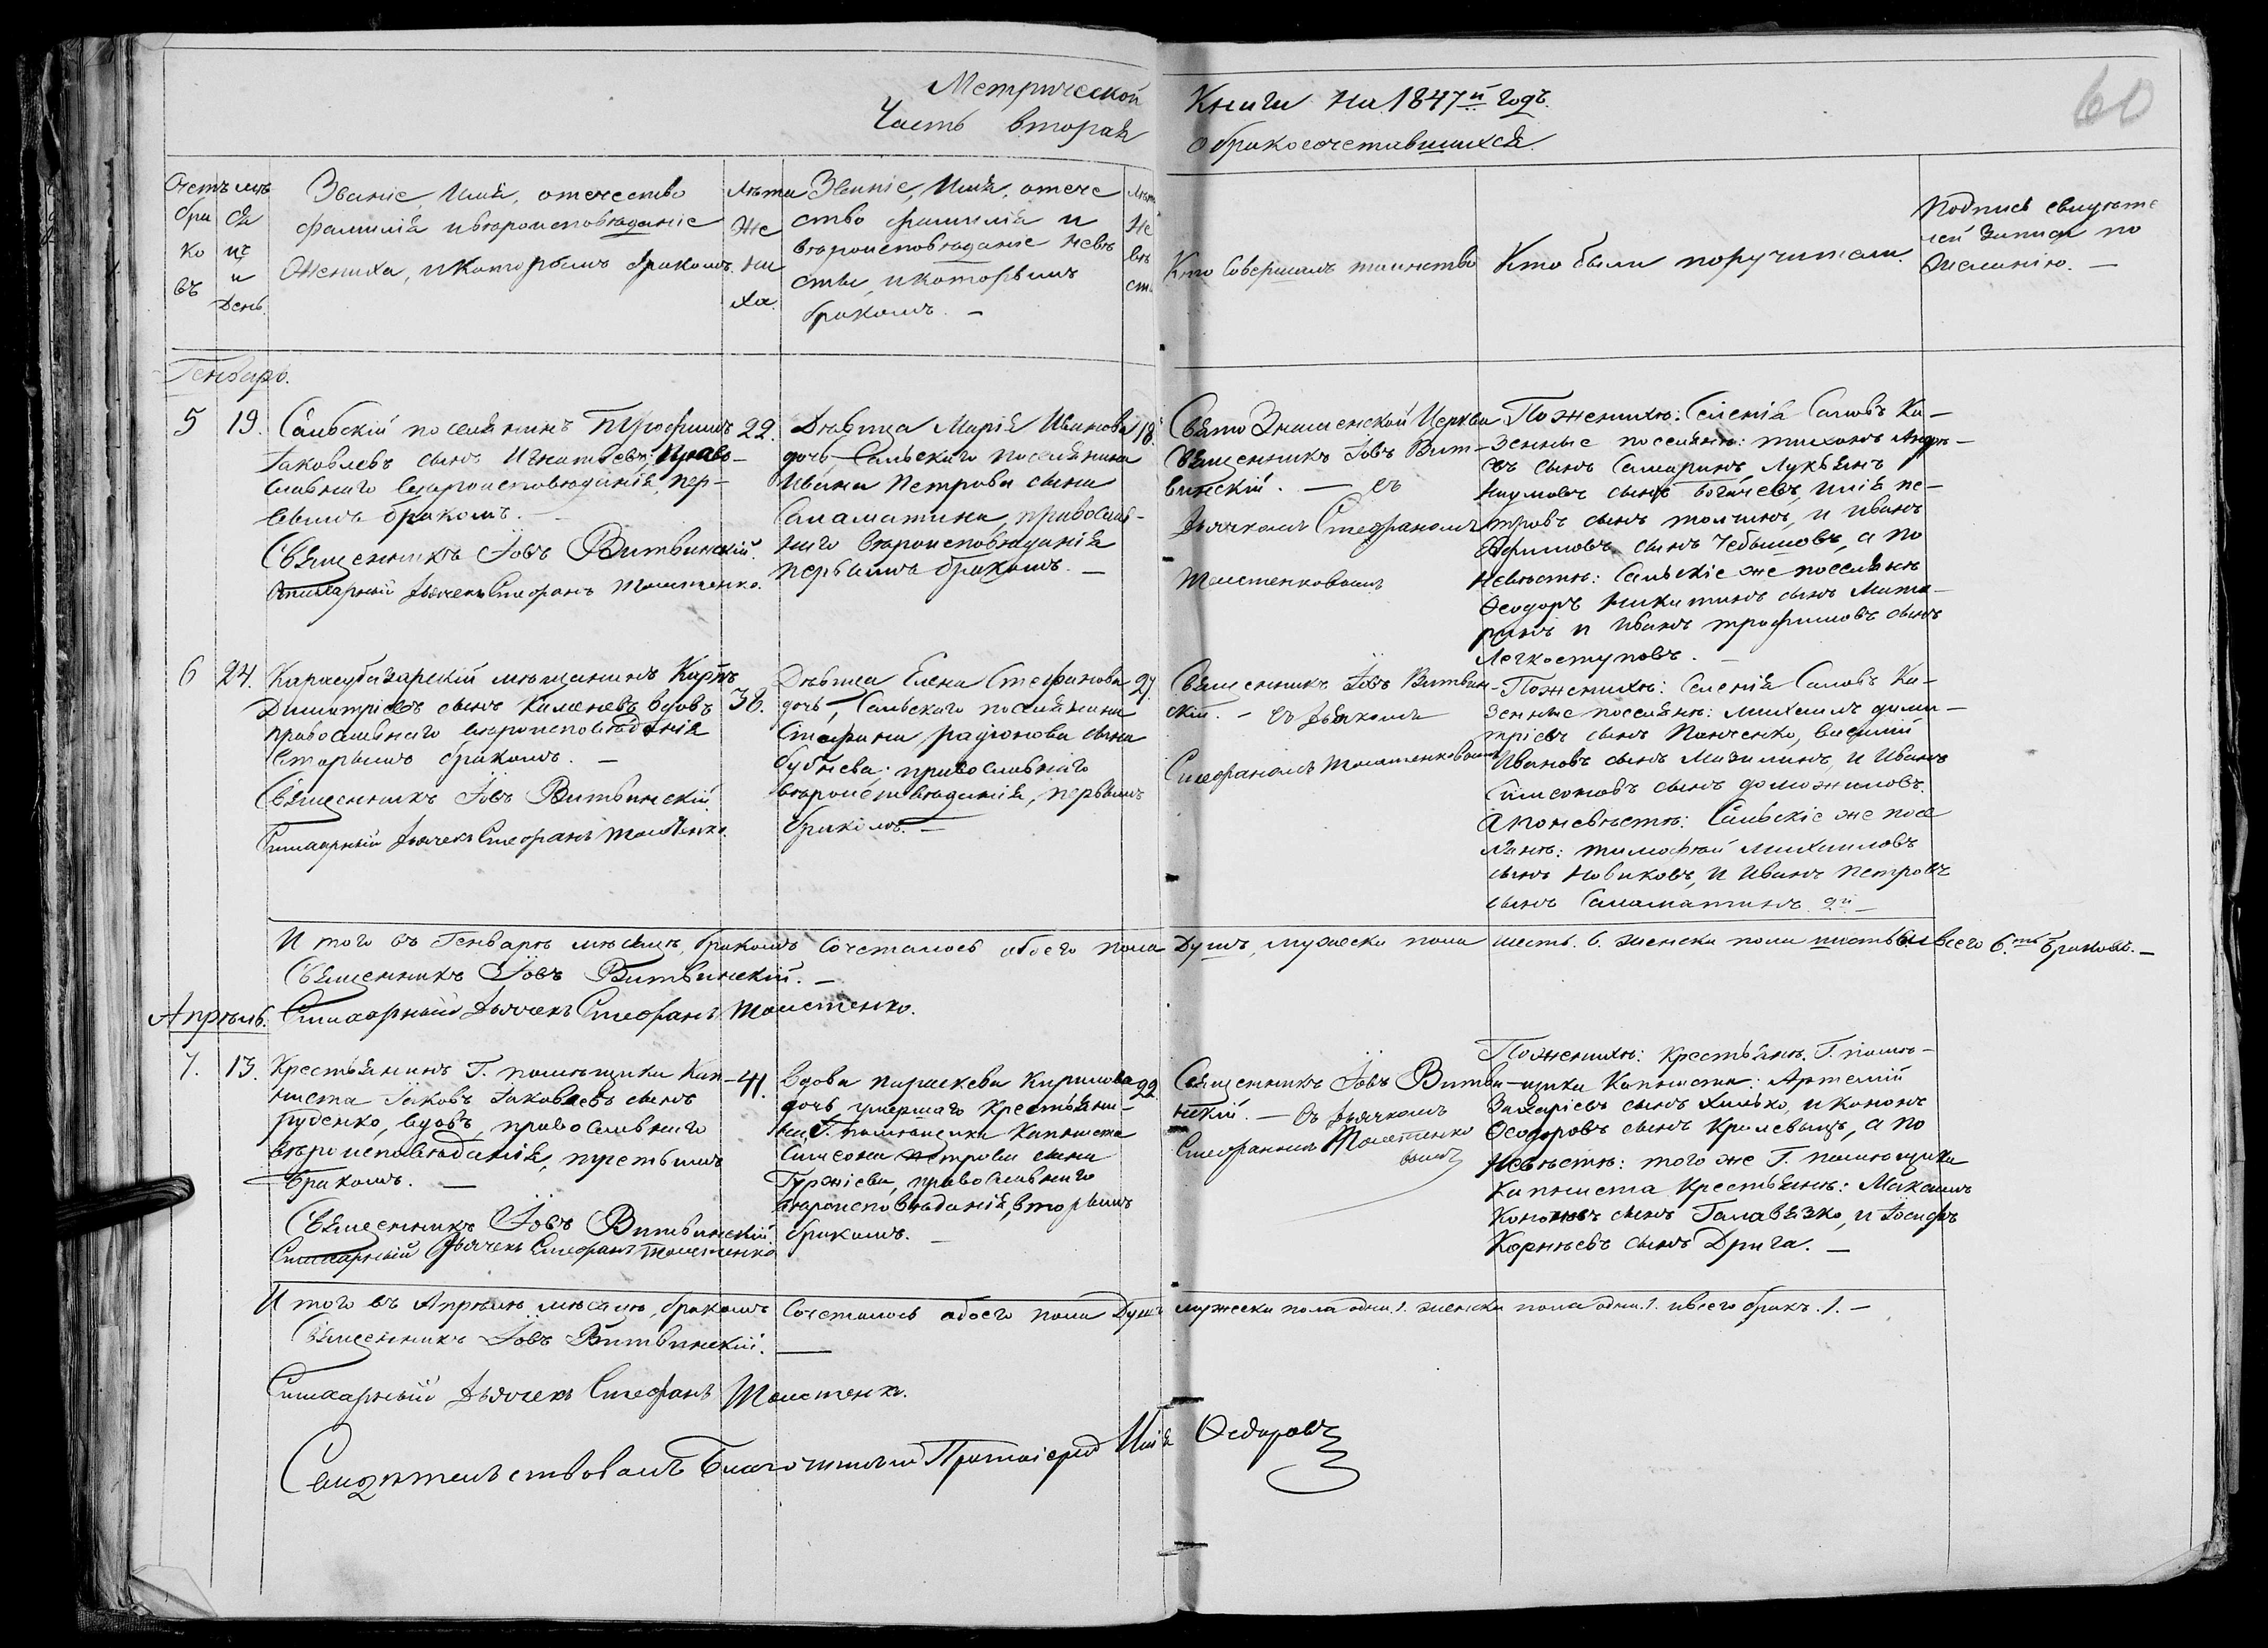 Метрической Книги на 1847й годъ.
Часть вторая о бракосочетавшихся
60
Счетъ браковъ
Мѣсяцъ и День.
Званіе, Имя, отечество
фамилія и вѣроисповѣданіе
Жениха, и которымъ бракомъ.
Лѣта Жениха.
Званіе, Имя, отече
ство фамилія и
вѣроисповѣданіе невѣ
сты, и которымъ
бракомъ. —
Лѣта Невѣст
Кто Совершалъ таинство
Кто были поручители.
Подпись свидѣте
лей записи по
Желанію. —
Генварь.
5 19.
Сальскій поселянинъ Трофимъ
Іаковлевъ сынъ Игнатьевъ, право-
славнаго вѣроисповѣданія, пер-
вымъ бракомъ. —
Священникъ Іовъ Витвинскій.
Стихарный Дьячекъ Стефанъ Толстенко.
22.
Дѣвица Марія Иванова
дочь, Сальскаго поселянина
Ивана Петрова сына
Саламатина, православ-
наго вѣроисповѣданія
первымъ бракомъ. —
18.
Свято Знаменской Церкви
Священникъ Іовъ Вит-
винскій. — съ
Дьячкомъ Стефаномъ
Толстенковымъ
По женихѣ: Селенія Саловъ Ка-
зенные поселяне: тихонъ Андре-
евъ сынъ Самаринъ, Лукьянъ
Наумовъ сынъ Богачевъ, Илія пе-
тровъ сынъ толчинъ, и иванъ
Ефимовъ сынъ Чебышовъ, а по
Невѣстѣ: Сальскіе же поселяне
Ѳеодоръ Никитинъ сынъ Мата-
ринъ и Иванъ трофимовъ сынъ
Легкоступовъ. —
6 24.
Карасубазарскій мѣщанинъ Карпъ
Димитріевъ сынъ Каменевъ вдовъ
православнаго вѣроисповѣданія
вторымъ бракомъ. —
Священникъ Іовъ Витвинскій
Стихарный Дьячекъ Стефанъ Толстенко.
38.
Дѣвица Елена Стефанова
дочь, Сальскаго поселянина
Стефана радіонова сына
Бубнева; православнаго
вѣроисповѣданія, первымъ
бракомъ. —
27.
Священникъ Іовъ Витвин-
скій. — съ Дьячкомъ
Стефаномъ Толстенковымъ
По женихѣ: Селенія Саловъ Ка-
зенные поселяне: михаилъ дими-
тріевъ сынъ Панченко, василій
Ивановъ сынъ Мазилинъ, и Иванъ
Самсоновъ сынъ доможиловъ.
А по невѣстѣ: Сальскіе же посе
ляне: тимофѣй михаиловъ
сынъ Новиковъ, и Иванъ Петровъ
сынъ Саламатинъ 2й —
И того въ Генварѣ мѣсяцѣ, бракомъ сочеталось обоего пола Душъ, мужеска пола шесть. 6. женска пола шесть 6. и всего 6.ть браковъ. —
Священникъ Іовъ Витвинскій. —
Стихарный Дьячекъ Стефанъ Толстенко.
Апрѣль.
7. 13.
Крестьянинъ Г. помѣщика Кап-
ниста Іаковъ Іаковлевъ сынъ
Руденко, вдовъ, православнаго
вѣроисповѣданія, третьимъ
бракомъ. —
Священникъ Іовъ Витвинскій.
Стихарный Дьячекъ Стефанъ Толстенко
41.
Вдова параскева Кирилова
дочь, умершаго Крестьяни-
на Г. помѣщика Капниста
Симеона петрова сына
Гуржіева, православнаго
вѣроисповѣданія, вторымъ
бракомъ. —
22.
Священникъ Іовъ Витви-
нскій. — Съ Дьячкомъ
Стефаномъ Толстенко
вымъ
По женихѣ: Крестьяне. Г. помѣ-
щика Капниста: Артемій
Захаріевъ сынъ Хилько, и Кононъ
Ѳеодоровъ сынъ Кролевецъ, а по
Невѣстѣ: того же Г. помѣщика
Капниста Крестьяне: Максимъ
Кононовъ сынъ Галавязко, и Іосифъ
Корнѣевъ сынъ Дрига. —
И того въ Апрѣлѣ мѣсяцѣ, бракомъ Сочеталось обоего пола Душъ мужеска пола одна. 1. женска пола одна. 1. и всего бракъ. 1. —
Священникъ Іовъ Витвинскій.
Стихарный Дьячекъ Стефанъ Толстенко.
Свидѣтельствовалъ Благочинный Протоіерей Илія Ѳедоровъ